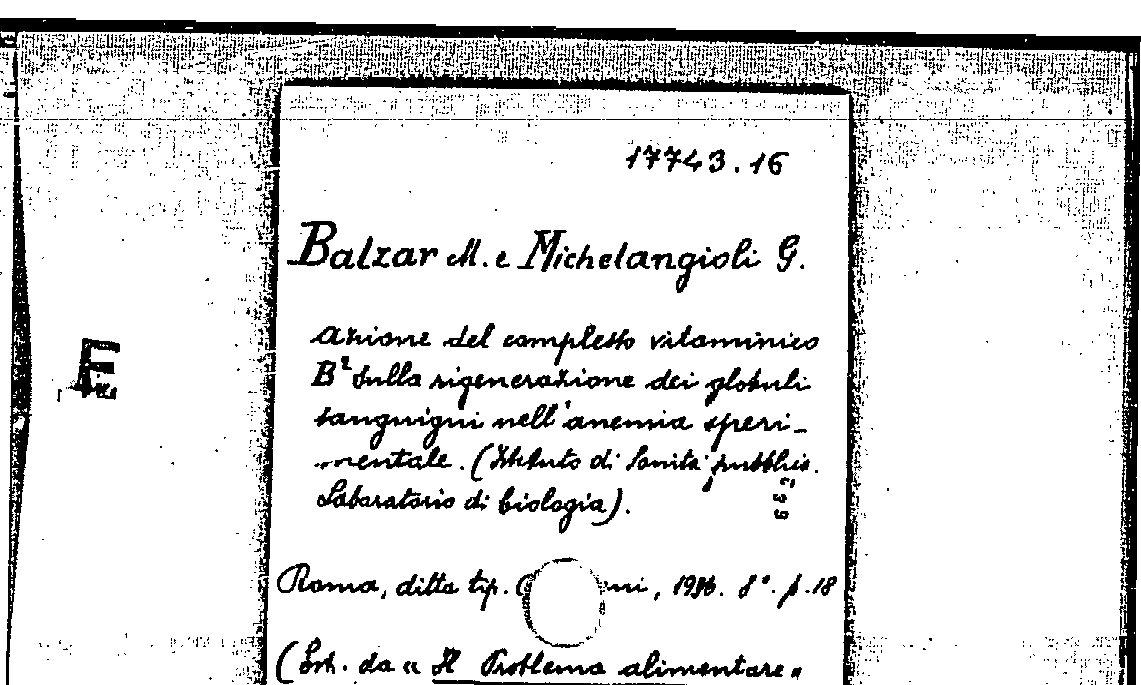 17743.16
Balzar M. e Michelangioli G.
E
Azione del complesso vitaminico
B² sulla rigenerazione dei globuli
sanguigni nell'anemia speri-
mentale. (Istituto di Sanità pubblic.
Laboratorio di biologia).
Roma, ditta tip. 1936. 8°. p. 18
(Estr. da « Il Problema alimentare »